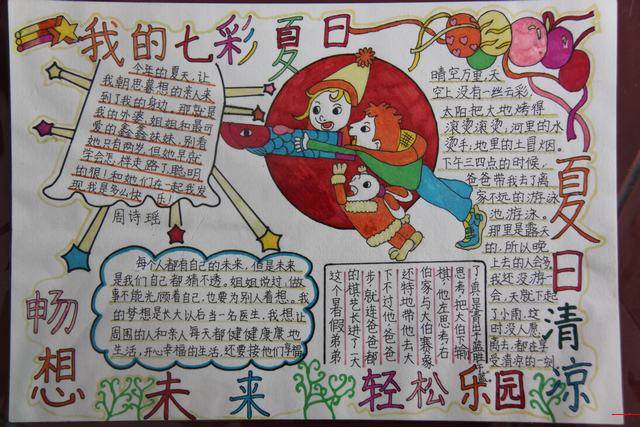 我的七彩夏日
今年的夏天，让
我朝思暮想的亲人来
到了我的身边，那就是
我的外婆、姐姐和最可
爱的鑫鑫妹妹，别看
她只有两岁，但她早就
学会怎样走路了，聪明
的很！和她们在一起我发
现我是多么快乐！
周诗瑶
晴空万里，天
空上没有一丝云彩，
太阳把大地烤得
滚烫滚烫，河里的水
烫手，地里的土冒烟。
下午三四点的时候，
爸爸带我去了离
家不远的游泳
池游泳。
那里是露天
的，所以晚
上去的人会多
我还没游一
会，天就下起
了小雨，这
时没人愿
离去，都在享
受清凉的一刻
夏日清凉
每个人都有自己的未来，但是未来
是我们自己都猜不透，姐姐说过，做
事不能光顾着自己，也要为别人着想。我
的梦想是长大以后当一名医生，我想让
周围的人和亲人每天都健健康康地
生活，开心幸福的生活，还要接他们享福
畅想未来
这个暑假弟弟
的棋艺长进了一大
步，就连爸爸都
下不过他，爸爸
还特地带他去大
伯家与大伯赛象
棋，他左思考右
思考，把大伯下输
了，真是青出于蓝胜于蓝
轻松乐园